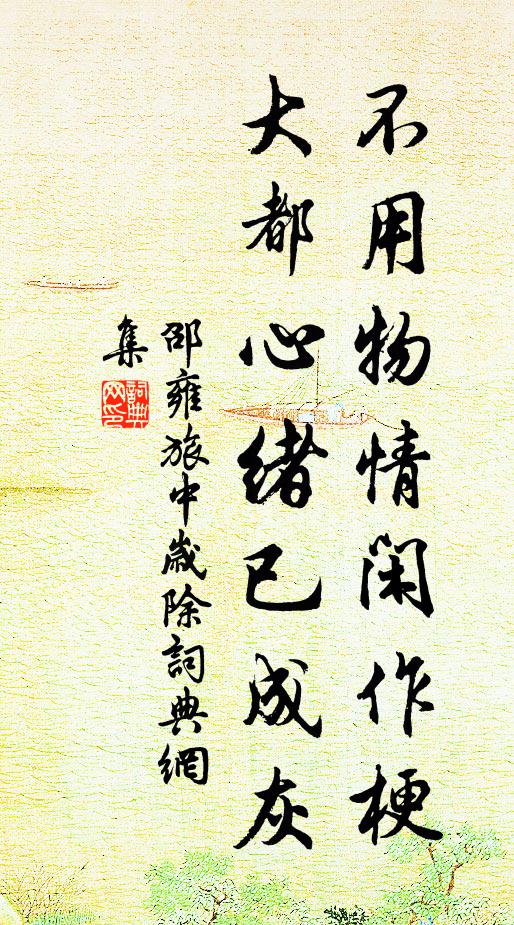 不用物情閑作梗
大都心緒已成灰
邵雍旅中歲除詞典網
集
詞典
网印